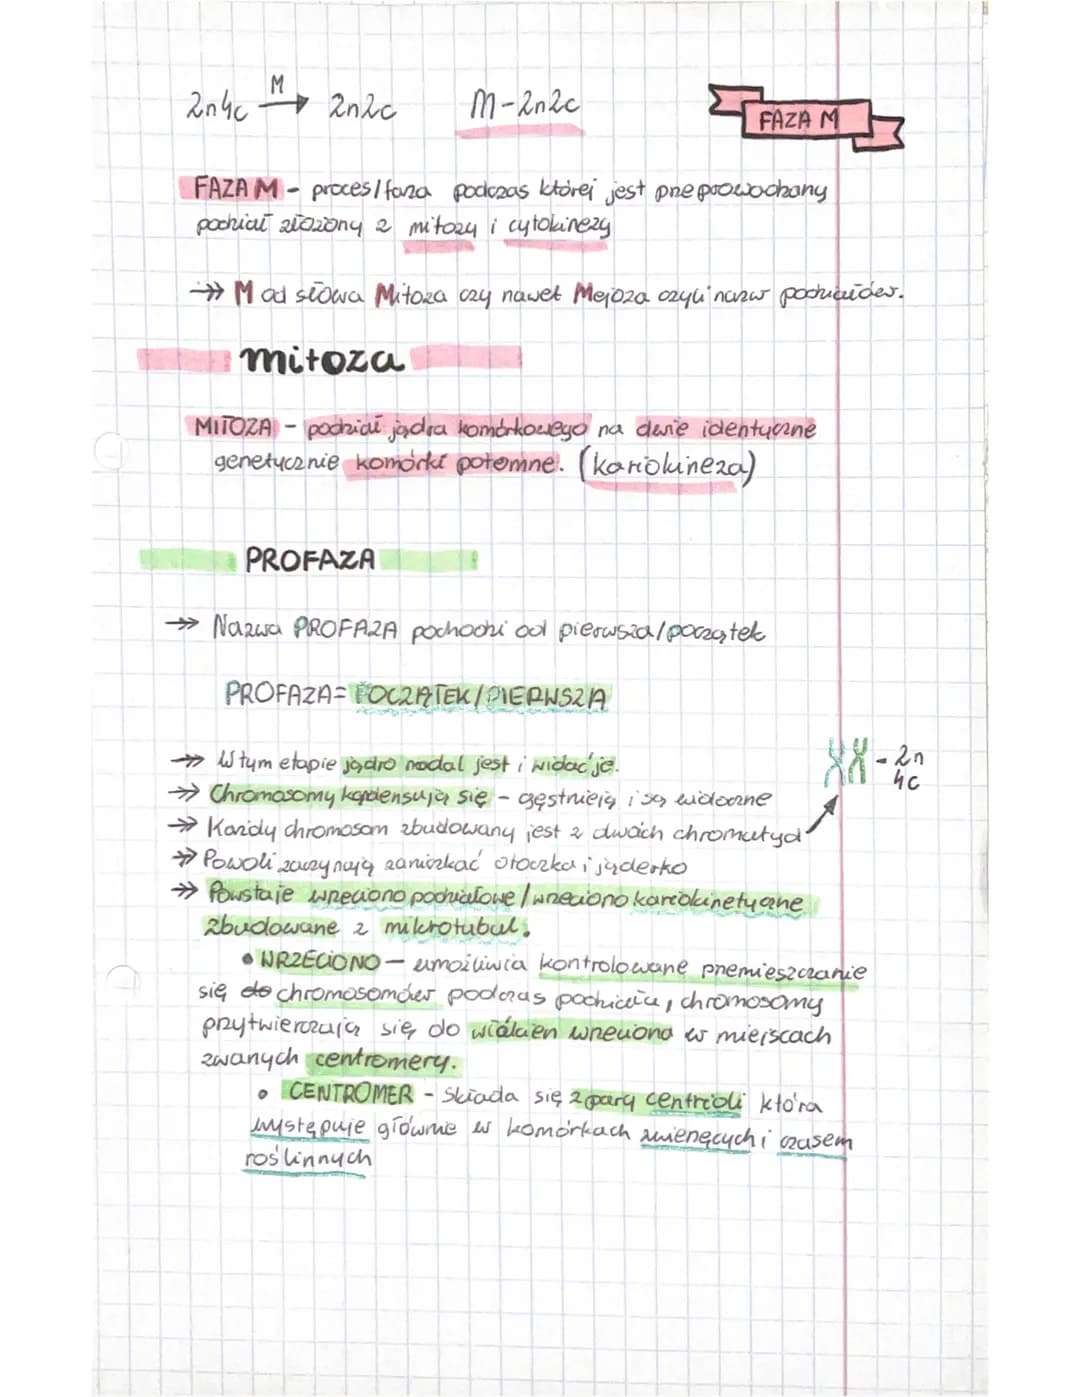 2n4c M→ 2n2c M-2n2c
FAZA M
FAZA M - proces/faza podczas której jest przeprowadzany
podział złożony z mitozy i cytokinezy
→» M od słowa Mitoza czy nawet Mejoza czyli nazw podziałów.
mitoza
MITOZA - podział jądra komórkowego na dwie identyczne
genetycznie komórki potomne. (kariokineza)
PROFAZA
→» Nazwa PROFAZA pochodzi od pierwsza/początek
PROFAZA= POCZĄTEK/PIERWSZA
→» W tym etapie jądro nadal jest i widać je.
XX - 2n
4c
→» Chromosomy kondensują się - gęstnieją i są widoczne
→» Każdy chromosom zbudowany jest z dwóch chromatyd
→» Powoli zaczynają zanikać otoczka i jąderko
→» Powstaje wrzeciono podziałowe/wrzeciono kariokinetyczne
zbudowane z mikrotubul.
• WRZECIONO - umożliwia kontrolowane przemieszczanie
się do chromosomów podczas podziału, chromosomy
przytwierdzają się do włókien wrzeciona w miejscach
zwanych centromery.
• CENTROMER - składa się z pary centrioli która
występuje głównie w komórkach zwierzęcych i czasem
roślinnych